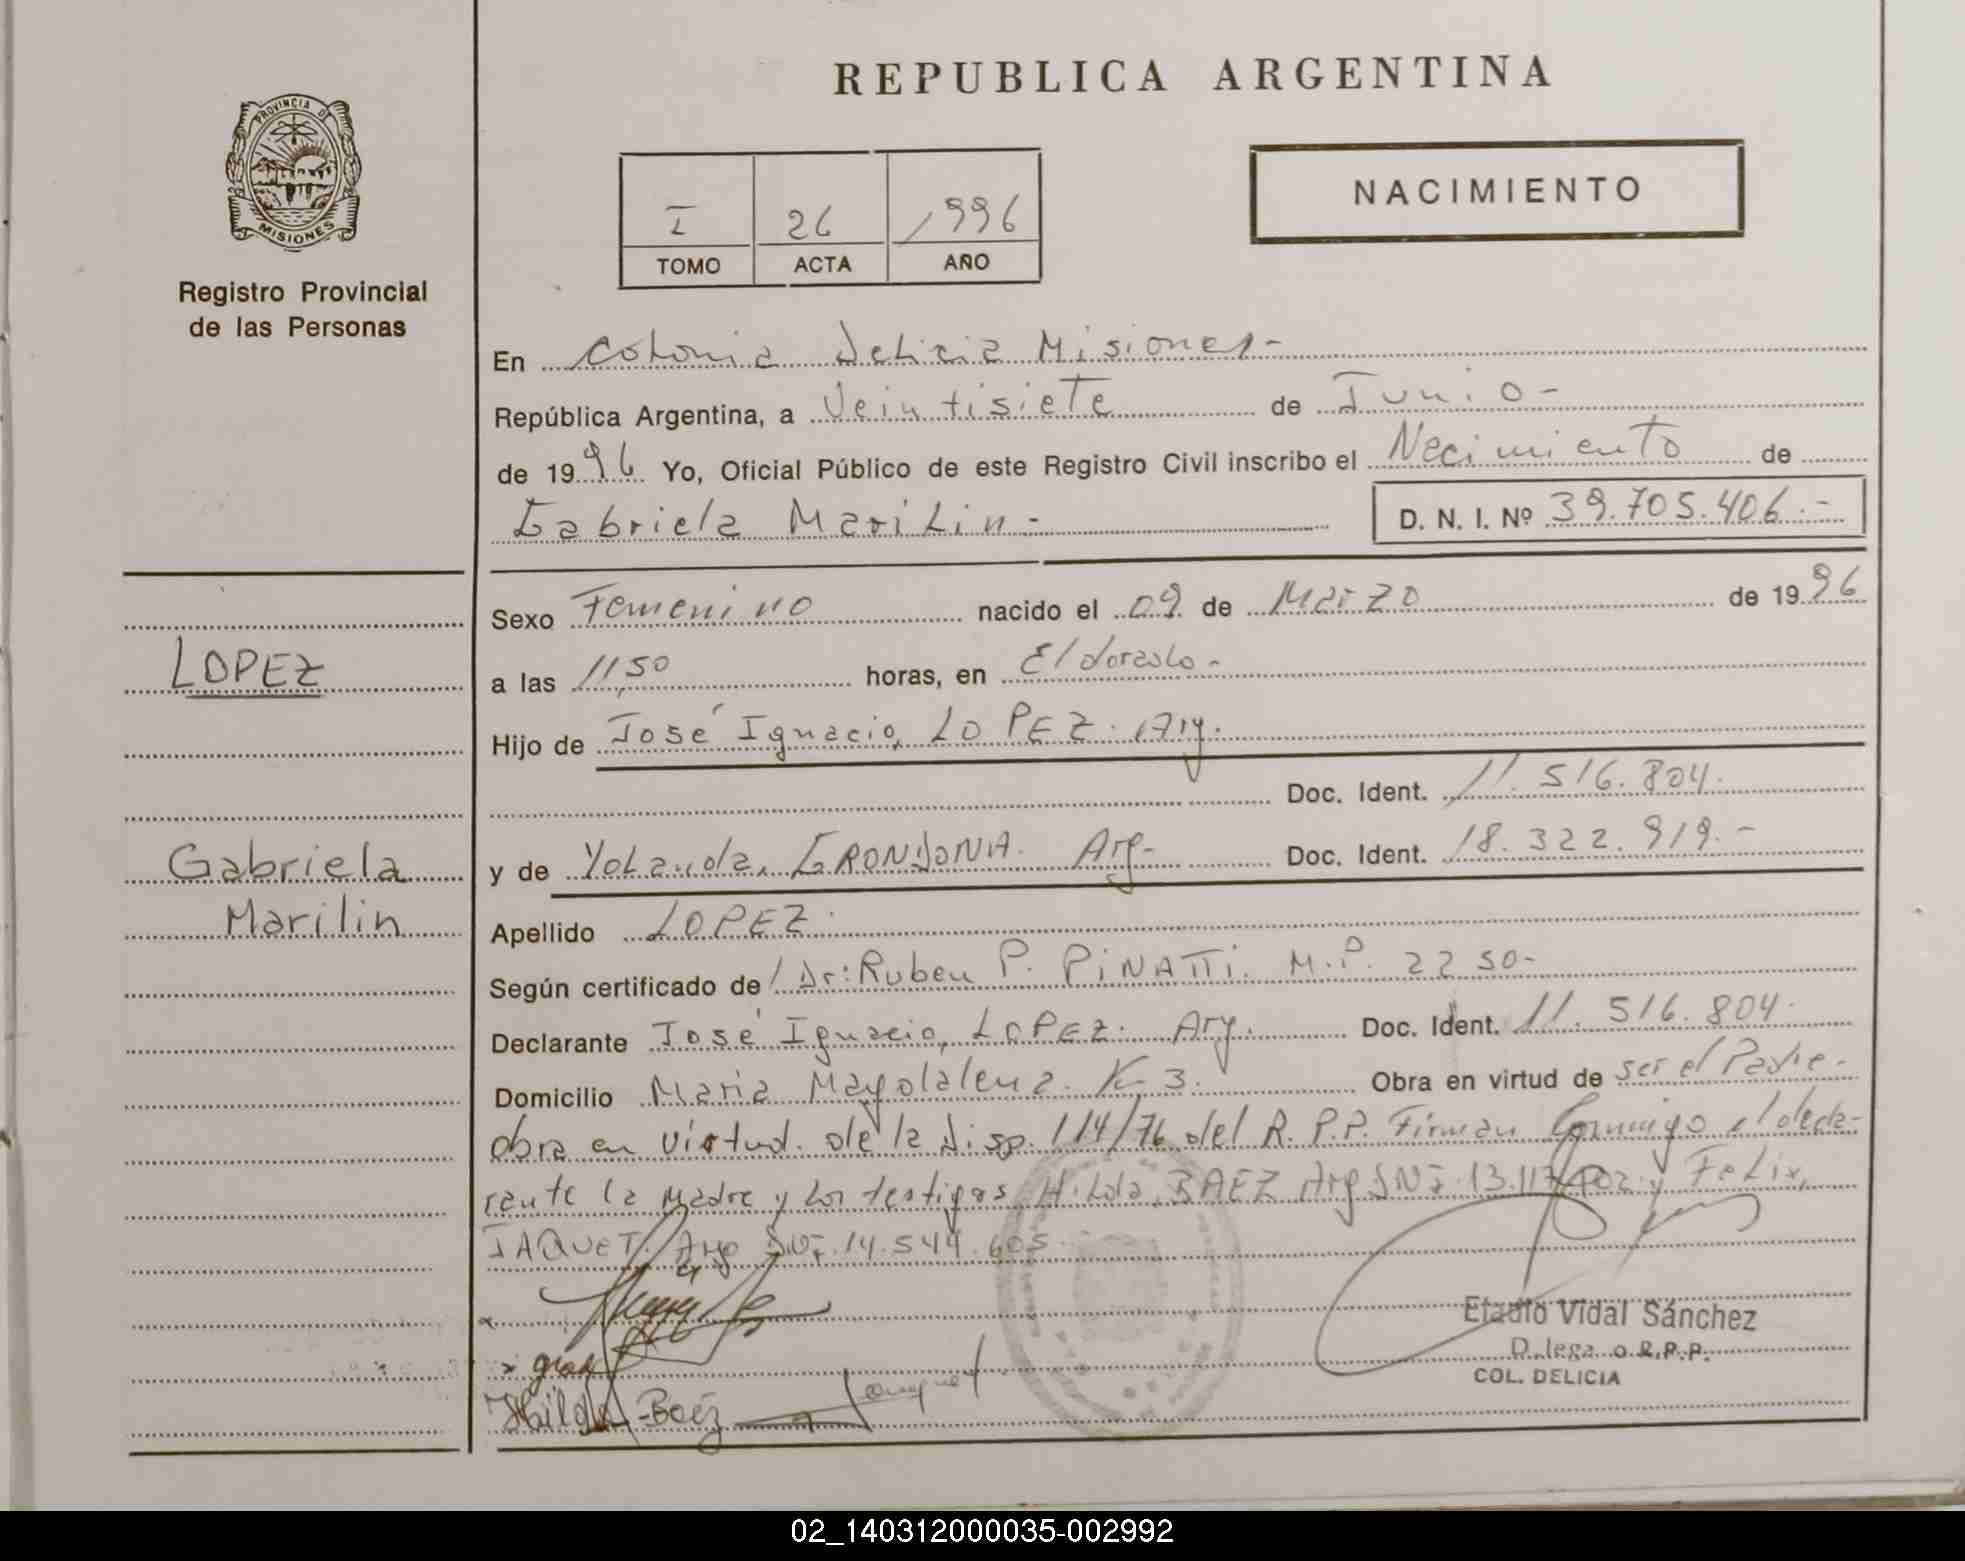 REPUBLICA ARGENTINA
PROVINCIA DE
MISIONES
Registro Provincial
de las Personas
I 26 1996
TOMO ACTA AÑO
NACIMIENTO
En Colonia Delicia Misiones-
República Argentina, a Veintisiete de Junio-
de 1996 Yo, Oficial Público de este Registro Civil inscribo el Nacimiento de
Gabriela Marilin-
D. N. I. Nº 39.705.406.-
LOPEZ
Gabriela
Marilin
Sexo Femenino nacido el 09 de Marzo de 1996
a las 11,50 horas, en Eldorado-
Hijo de José Ignacio, LOPEZ. Arg.
Doc. Ident. 11.516.804.
y de Yolanda, GRONDONA. Arg- Doc. Ident. 18.322.919.-
Apellido LOPEZ.
Según certificado de Dr: Ruben P. PiNATTi. M.P. 2250-
Declarante José Ignacio, LOPEZ. Arg. Doc. Ident. 11.516.804.
Domicilio Maria Magdalena. K-3. Obra en virtud de ser el Padre-
obra en virtud. de la Disp. 114/76 del R.P.P. Firman Conmigo el decla-
rante la Madre y los testigos Hilda, BAEZ Arg DNI. 13.117.402 y Felix,
JAQUET. Arg DNI. 14.544.605
Hilda Baéz
Eladio Vidal Sánchez
D lega o R.P.P.
COL. DELICIA
02_140312000035-002992